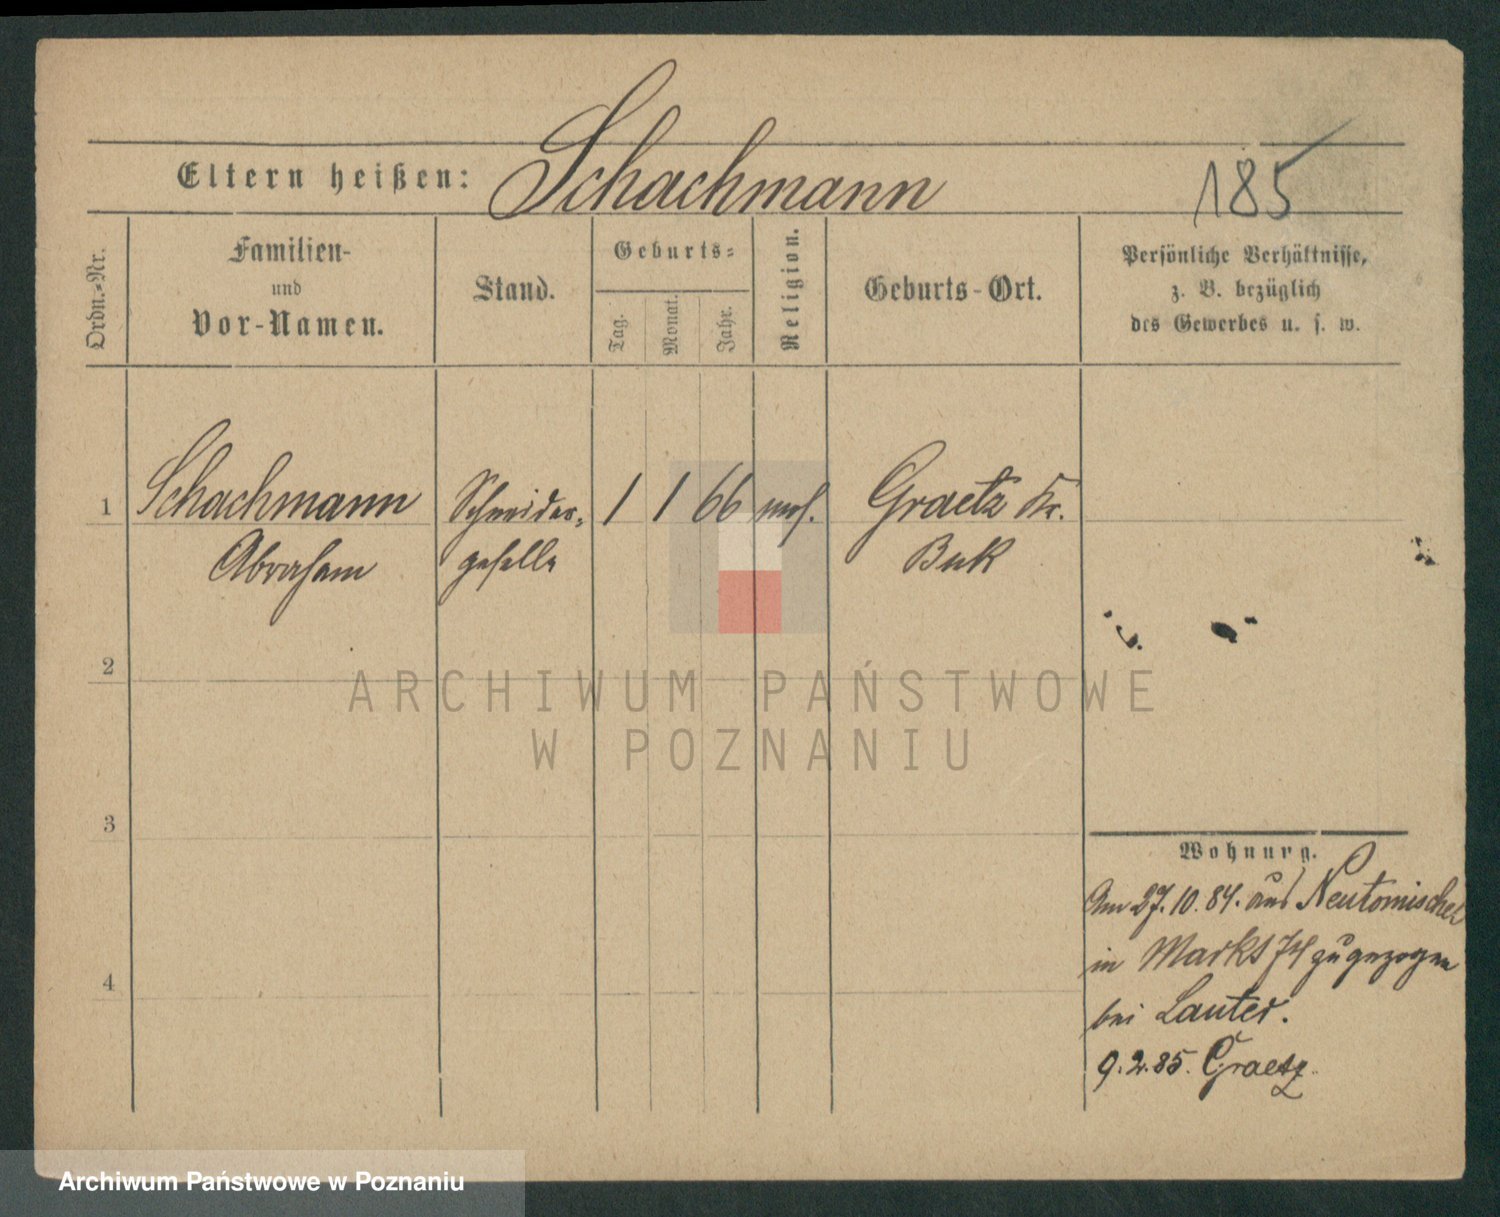 Schachmann
Eltern heißen:
185
Ordn.-Nr.
Familien-
und
Vor-Namen.
Stand.
Geburts-
Tag.
Monat.
Jahr.
Religion.
Geburts-Ort.
Persönliche Verhältnisse,
z. B. bezüglich
des Gewerbes u. s. w.
1
Schachmann
Abraham
Schneider-
geselle
1
1
66
mos.
Graetz Kr.
Buk
2
3
4
Wohnung.
Am 27.10.84. aus Neutomischel
in Markt 74 zugezogen
bei Lauter.
9.2.85. Graetz.
ARCHIWUM PAŃSTWOWE
W POZNANIU
Archiwum Państwowe w Poznaniu